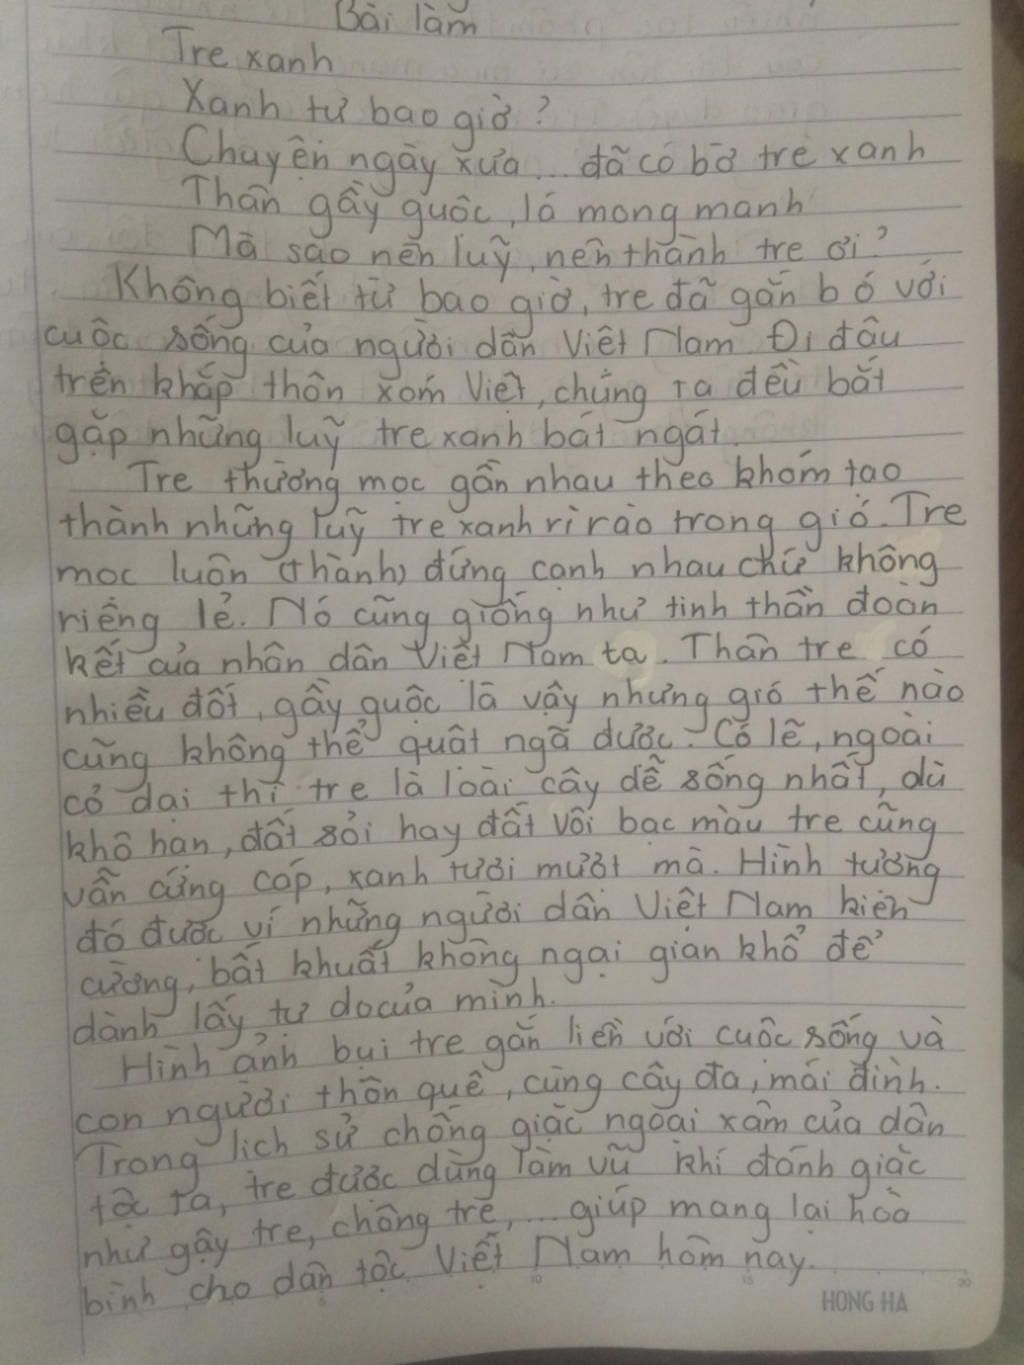 Bài làm
Tre xanh
Xanh tự bao giờ?
Chuyện ngày xưa... đã có bờ tre xanh
Thân gầy guộc, lá mong manh
Mà sao nên luỹ, nên thành tre ơi?
Không biết từ bao giờ, tre đã gắn bó với
cuộc sống của người dân Việt Nam. Đi đâu
trên khắp thôn xóm Việt, chúng ta đều bắt
gặp những luỹ tre xanh bát ngát.
Tre thường mọc gần nhau theo khóm tạo
thành những luỹ tre xanh rì rào trong gió. Tre
mọc luôn (thành) đứng cạnh nhau chứ không
riêng lẻ. Nó cũng giống như tinh thần đoàn
kết của nhân dân Việt Nam ta. Thân tre có
nhiều đốt, gầy guộc là vậy nhưng gió thế nào
cũng không thể quật ngã được. Có lẽ, ngoài
cỏ dại thì tre là loài cây dễ sống nhất, dù
khô hạn, đất sỏi hay đất vôi bạc màu tre cũng
vẫn cứng cáp, xanh tươi mượt mà. Hình tượng
đó được ví những người dân Việt Nam kiên
cường, bất khuất không ngại gian khổ để
dành lấy tự do của mình.
Hình ảnh bụi tre gắn liền với cuộc sống và
con người thôn quê, cùng cây đa, mái đình.
Trong lịch sử chống giặc ngoại xâm của dân
tộc ta, tre được dùng làm vũ khí đánh giặc
như gậy tre, chông tre,... giúp mang lại hoà
bình cho dân tộc Việt Nam hôm nay.
5 10 15 20
HONG HA